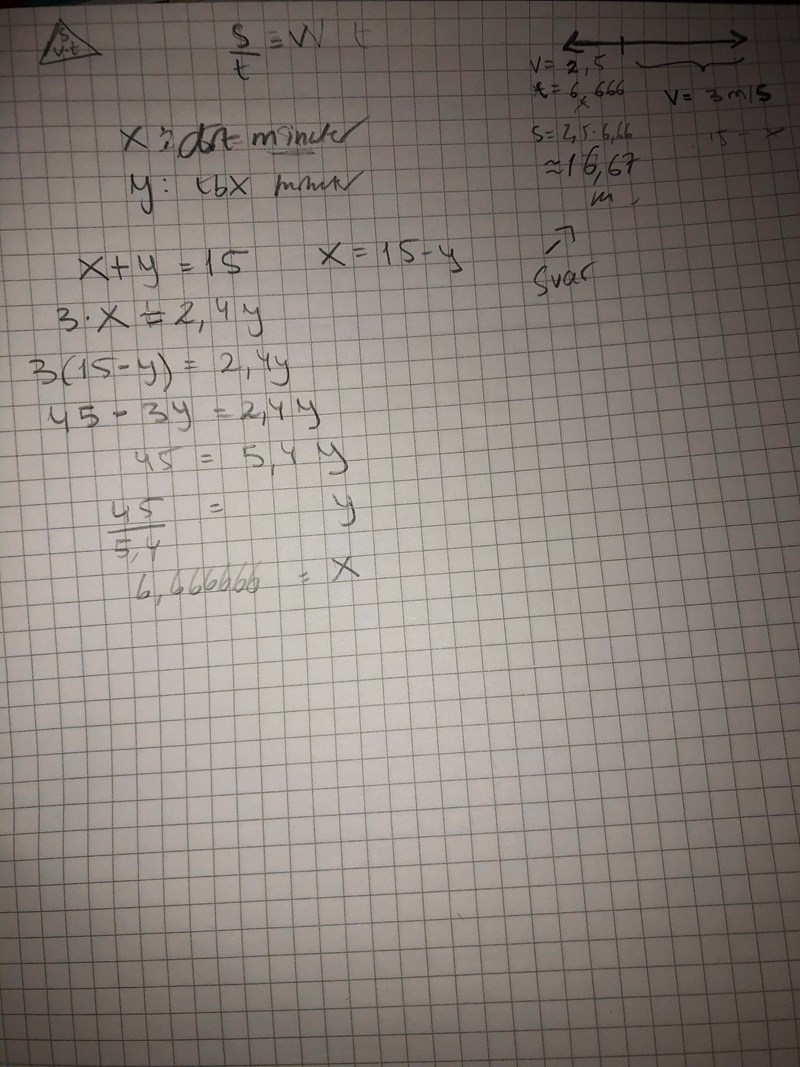 s
v·t
s/t = v t
x: dit minuter
y: tbx minuter
x+y = 15 x = 15-y
3·x = 2,4y
3(15-y) = 2,4y
45 - 3y = 2,4y
45 = 5,4 y
45/5,4 = y
6,666666 = x
v= 2,5
t= 6,666
x
v= 3 m/s
s= 2,5·6,66
15 - x
≈16,67
m
Svar